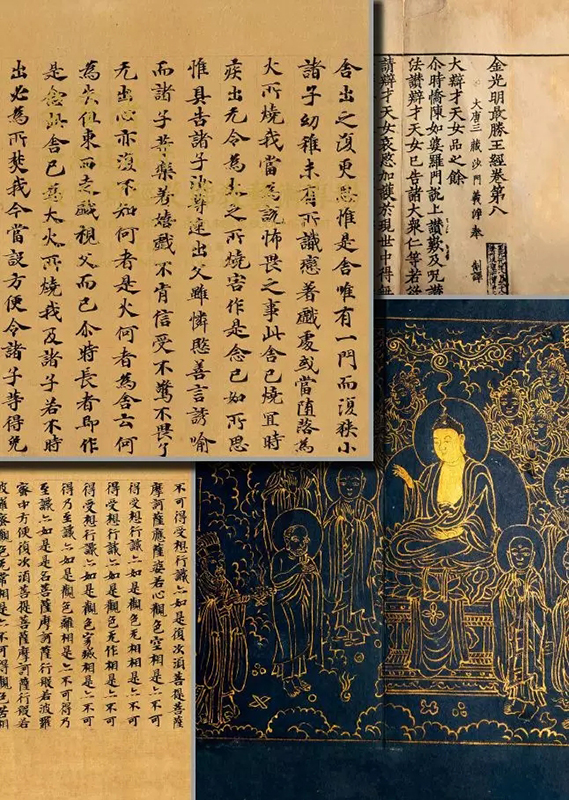 金光明最勝王經卷第八
大唐三藏沙門義淨奉 制譯
大辯才天女品之餘
尒時憍陳如婆羅門說上讚歎及呪讚
法讚辯才天女已告諸大衆仁等若欲
請辯才天女哀愍加護於現世中得
舍出之復更思惟是舍唯有一門而復狹小
諸子幼稚未有所識戀著戲處或當墮落為
火所燒我當為說怖畏之事此舍已燒宜時
疾出无令為火之所燒害作是念已如所思
惟具告諸子汝等速出父雖憐愍善言誘喻
而諸子等樂著嬉戲不肯信受不驚不畏了
无出心亦復不知何者是火何者為舍云何
為失但東西走戲視父而已尒時長者即作
是念此舍已為大火所燒我及諸子若不時
出必為所焚我今當設方便令諸子等得免
不可得受想行識亦如是復次須菩提菩薩
摩訶薩應薩婆若心觀色空相是亦不可
得受想行識亦如是觀色无相相是亦不可
得受想行識亦如是觀色无作相是亦不可
得受想行識亦如是觀色寂滅相是亦不可
得乃至識亦如是觀色離相是亦不可得乃
至識亦如是是名菩薩摩訶薩行般若波羅
蜜中方便復次須菩提菩薩摩訶薩行般若
波羅蜜觀色无常相是亦不可得觀色苦相